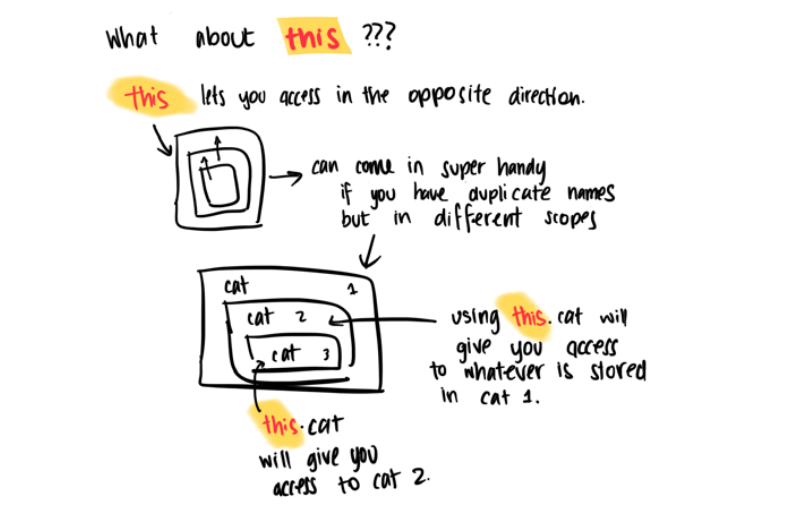 What about this ???
this lets you access in the opposite direction.
can come in super handy
if you have duplicate names
but in different scopes
cat 1
cat 2
cat 3
using this.cat will
give you access
to whatever is stored
in cat 1.
this.cat
will give you
access to cat 2.